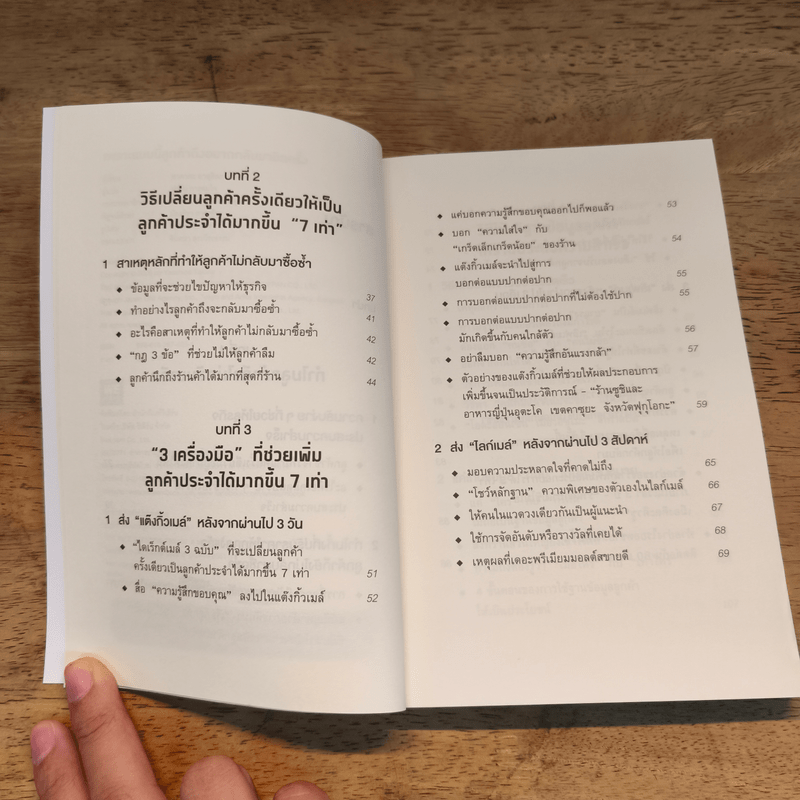 บทที่ 2
วิธีเปลี่ยนลูกค้าครั้งเดียวให้เป็น
ลูกค้าประจำได้มากขึ้น "7 เท่า"
1 สาเหตุหลักที่ทำให้ลูกค้าไม่กลับมาซื้อซ้ำ
◆ ข้อมูลที่จะช่วยไขปัญหาให้ธุรกิจ 37
◆ ทำอย่างไรลูกค้าถึงจะกลับมาซื้อซ้ำ 41
◆ อะไรคือสาเหตุที่ทำให้ลูกค้าไม่กลับมาซื้อซ้ำ 42
◆ "กฎ 3 ข้อ" ที่ช่วยไม่ให้ลูกค้าลืม 42
◆ ลูกค้านึกถึงร้านค้าได้มากที่สุดกี่ร้าน 44
บทที่ 3
"3 เครื่องมือ" ที่ช่วยเพิ่ม
ลูกค้าประจำได้มากขึ้น 7 เท่า
1 ส่ง "แต๊งกิ้วเมล์" หลังจากผ่านไป 3 วัน
◆ "ไดเร็กต์เมล์ 3 ฉบับ" ที่จะเปลี่ยนลูกค้า
ครั้งเดียวเป็นลูกค้าประจำได้มากขึ้น 7 เท่า 51
◆ สื่อ "ความรู้สึกขอบคุณ" ลงไปในแต๊งกิ้วเมล์ 52
◆ แค่บอกความรู้สึกขอบคุณออกไปก็พอแล้ว 53
◆ บอก "ความใส่ใจ" กับ
"เกร็ดเล็กเกร็ดน้อย" ของร้าน 54
◆ แต๊งกิ้วเมล์จะนำไปสู่การ
บอกต่อแบบปากต่อปาก 55
◆ การบอกต่อแบบปากต่อปากที่ไม่ต้องใช้ปาก 55
◆ การบอกต่อแบบปากต่อปาก
มักเกิดขึ้นกับคนใกล้ตัว 56
◆ อย่าลืมบอก "ความรู้สึกอันแรงกล้า" 57
◆ ตัวอย่างของแต๊งกิ้วเมล์ที่ช่วยให้ผลประกอบการ
เพิ่มขึ้นจนเป็นประวัติการณ์ - "ร้านซูชิและ
อาหารญี่ปุ่นอุตะโค เขตคาซุยะ จังหวัดฟุกุโอกะ" 59
2 ส่ง "ไลก์เมล์" หลังจากผ่านไป 3 สัปดาห์
◆ มอบความประหลาดใจที่คาดไม่ถึง 65
◆ "โชว์หลักฐาน" ความพิเศษของตัวเองในไลก์เมล์ 66
◆ ให้คนในแวดวงเดียวกันเป็นผู้แนะนำ 67
◆ ใช้การจัดอันดับหรือรางวัลที่เคยได้ 68
◆ เหตุผลที่เดอะพรีเมียมมอลต์สขายดี 69